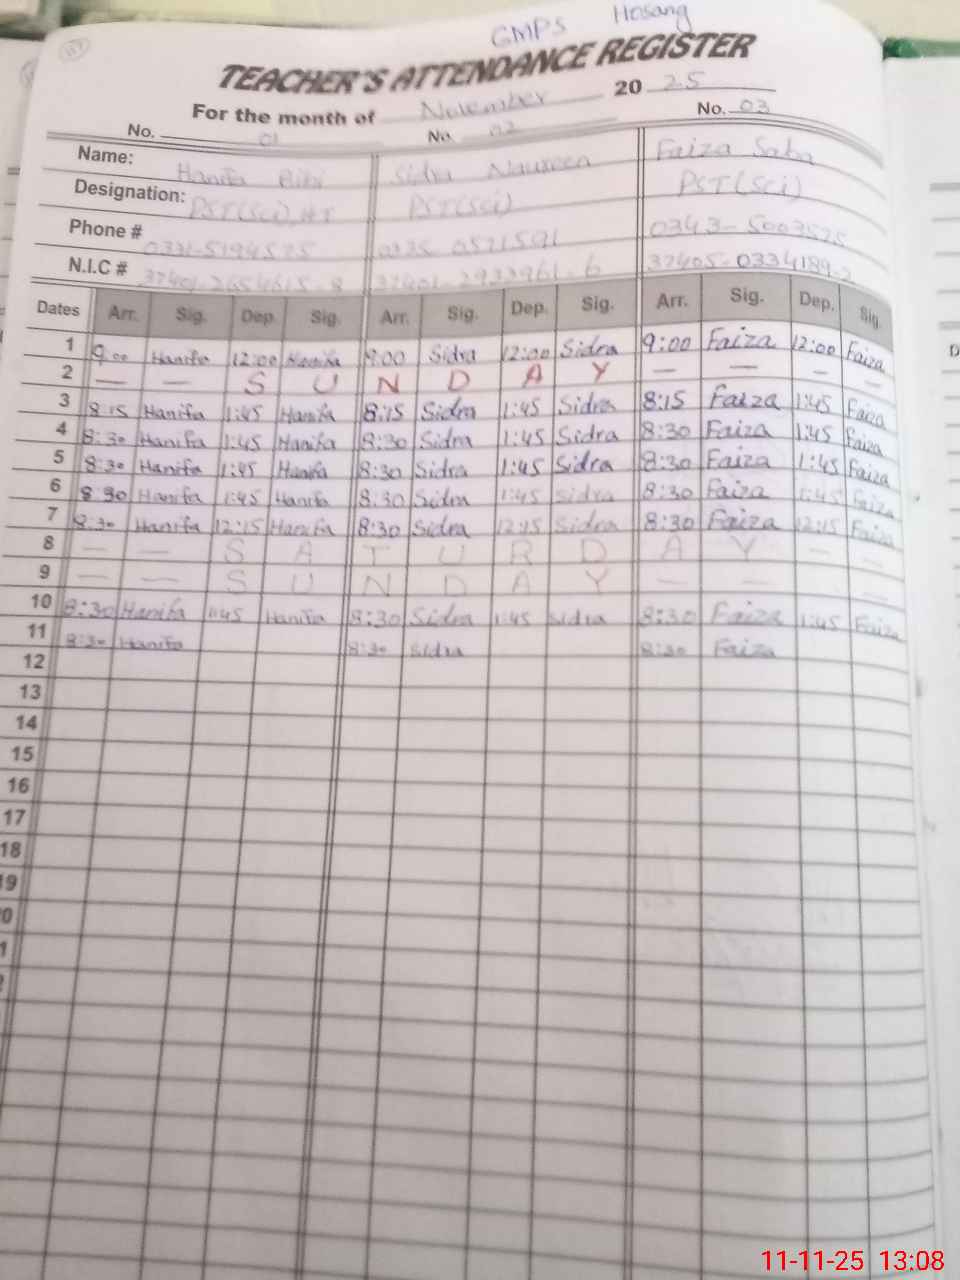 GMPS Hosang
TEACHER'S ATTENDANCE REGISTER
For the month of November 20 25
No. 01 No. 02 No. 03
Name: Hanifa Bibi Sidra Naureen Faiza Saba
Designation: PST(Sci) HT PST(Sci) PST(Sci)
Phone # 0331-5194575 0335-0571591 0343-5003525
N.I.C # 37401-2654615-8 37401-2933961-6 37405-0334189-2
Dates Arr. Sig. Dep. Sig. Arr. Sig. Dep. Sig. Arr. Sig. Dep. Sig.
1 9:00 Hanifa 12:00 Hanifa 9:00 Sidra 12:00 Sidra 9:00 Faiza 12:00 Faiza
2 — — S U N D A Y — — — —
3 8:15 Hanifa 1:45 Hanifa 8:15 Sidra 1:45 Sidra 8:15 Faiza 1:45 Faiza
4 8:30 Hanifa 1:45 Hanifa 8:30 Sidra 1:45 Sidra 8:30 Faiza 1:45 Faiza
5 8:30 Hanifa 1:45 Hanifa 8:30 Sidra 1:45 Sidra 8:30 Faiza 1:45 Faiza
6 8:30 Hanifa 1:45 Hanifa 8:30 Sidra 1:45 Sidra 8:30 Faiza 1:45 Faiza
7 8:30 Hanifa 12:15 Hanifa 8:30 Sidra 12:15 Sidra 8:30 Faiza 12:15 Faiza
8 — — S A T U R D A Y — —
9 — — S U N D A Y — — — —
10 8:30 Hanifa 1:45 Hanifa 8:30 Sidra 1:45 Sidra 8:30 Faiza 1:45 Faiza
11 8:30 Hanifa 8:30 Sidra 8:30 Faiza
12
13
14
15
16
17
18
19
11-11-25 13:08